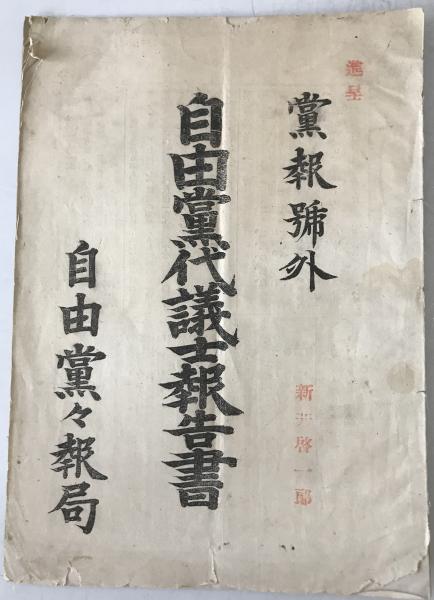 進呈
黨報號外
新井啓一郎
自由黨代議士報告書
自由黨々報局